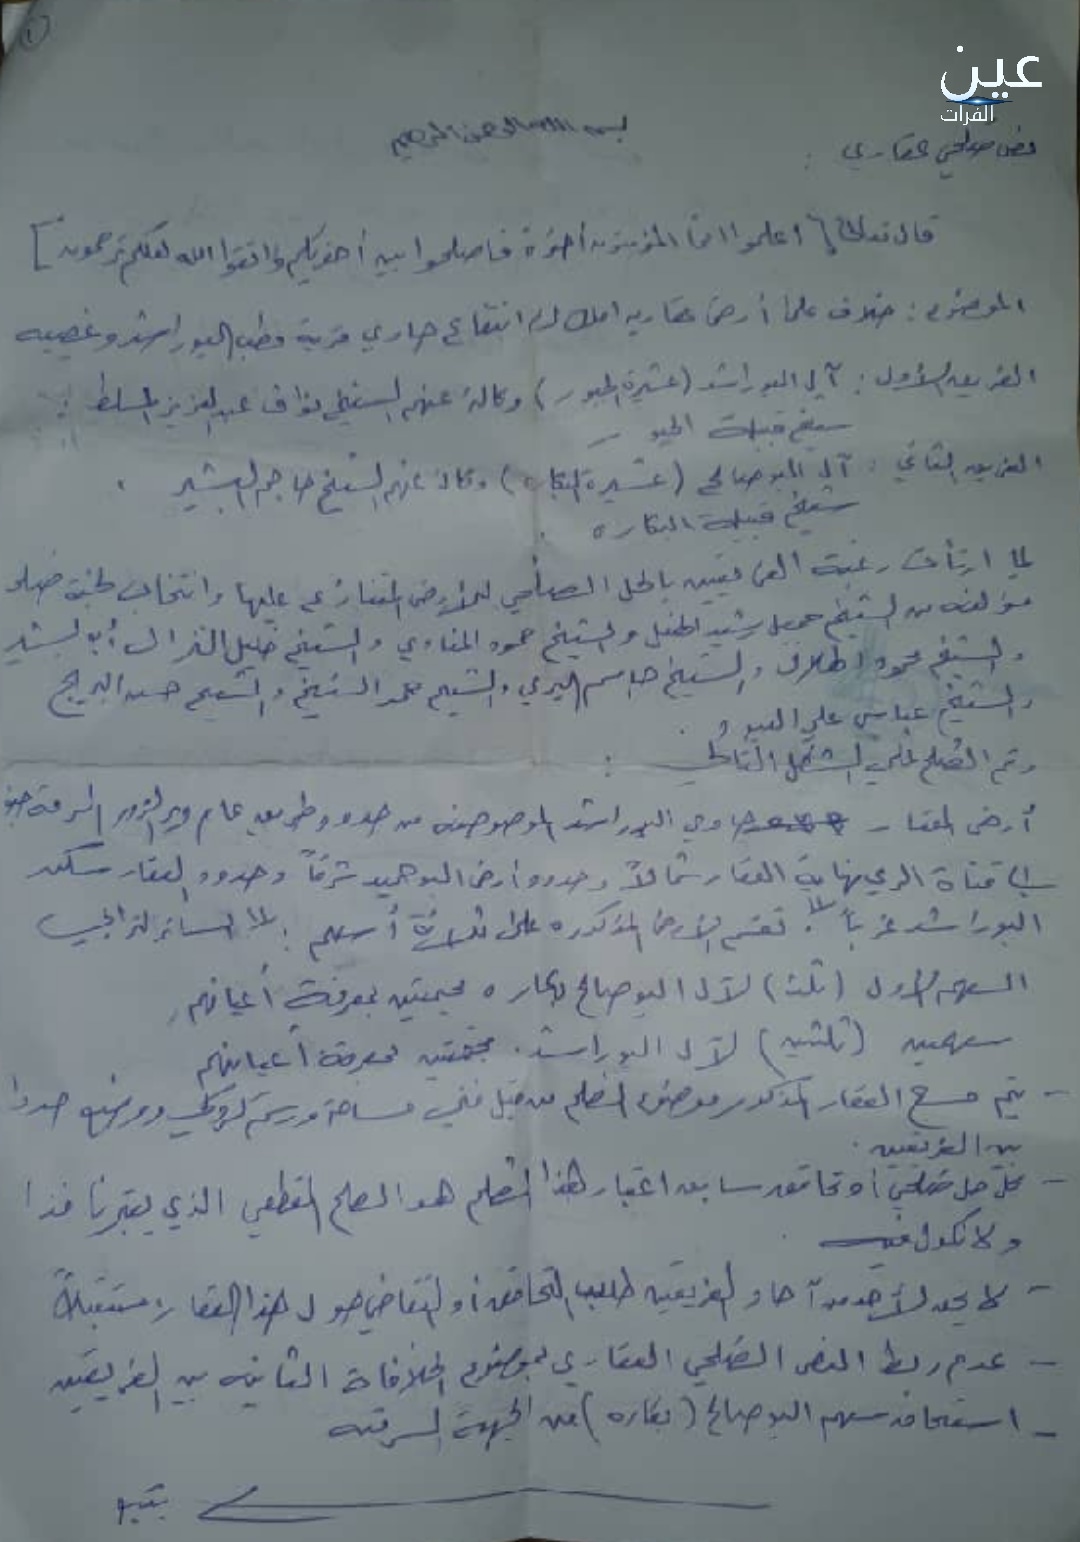 ١
عين
الفرات
بسم الله الرحمن الرحيم
فض صلحي عقاري :
قال تعالى [ اعلموا انما المؤمنون أخوة فاصلحوا بين أخويكم واتقوا الله لعلكم ترحمون ]
الموضوع : خلاف على أرض عقاريه املاك انتفاع حاوي قرية البوراشد
الفريق الأول : آل البوراشد (عشيرة الجبور) وكالة عنهم الشيخ نواف عبد العزيز المسلط
شيخ قبيلة الجبور
الفريق الثاني : آل البوصالح (عشيرة البكاره) وكالة عنهم الشيخ حاجم البشير .
شيخ قبيلة البكاره
لما ارتأت رغبة الفريقين بالحل الصلحي للأرض المتنازع عليها وانتخاب لجنة صلح
مؤلفة من الشيخ جميل رشيد الهفل والشيخ حمود والشيخ خليل
والشيخ محمود والشيخ جاسم والشيخ محمد الشيخ والشيخ حسن البريج
والشيخ عباس علي
وتم الصلح على الشكل التالي :
أرض العقار حاوي البوراشد الموصوفه من حدود طريق عام دير الزور الرقة جنوباً
إلى قناة الري نهاية العقار شمالاً وحدود أرض البوحميد شرقاً وحدود العقار سكن
البوراشد غرباً . تقسم الأرض المذكوره على ثلاثة أسهم :
السهم الأول (ثلث) لآل البوصالح بكاره بمعرفة أعيانهم
سهمين (ثلثين) لآل البوراشد . بمعرفة أعيانهم
- يتم مسح العقار المذكور موضوع الصلح من قبل فني مساحة ورسم كروكي
من الفريقين .
- حل صلحي أو تحاقق سابق اعتبار هذا الصلح هو الصلح القطعي الذي يعتبر نافذا
ولا نكول فيه
- لا يحق لأحد من آحاد الفريقين طلب التحاقق أو التقاضي حول هذا العقار مستقبلاً
- عدم ربط الفض الصلحي العقاري بموضوع الخلافات الثانيه بين الفريقين
- سهم البوصالح (بكاره) من الجهة الشرقيه
يتبع